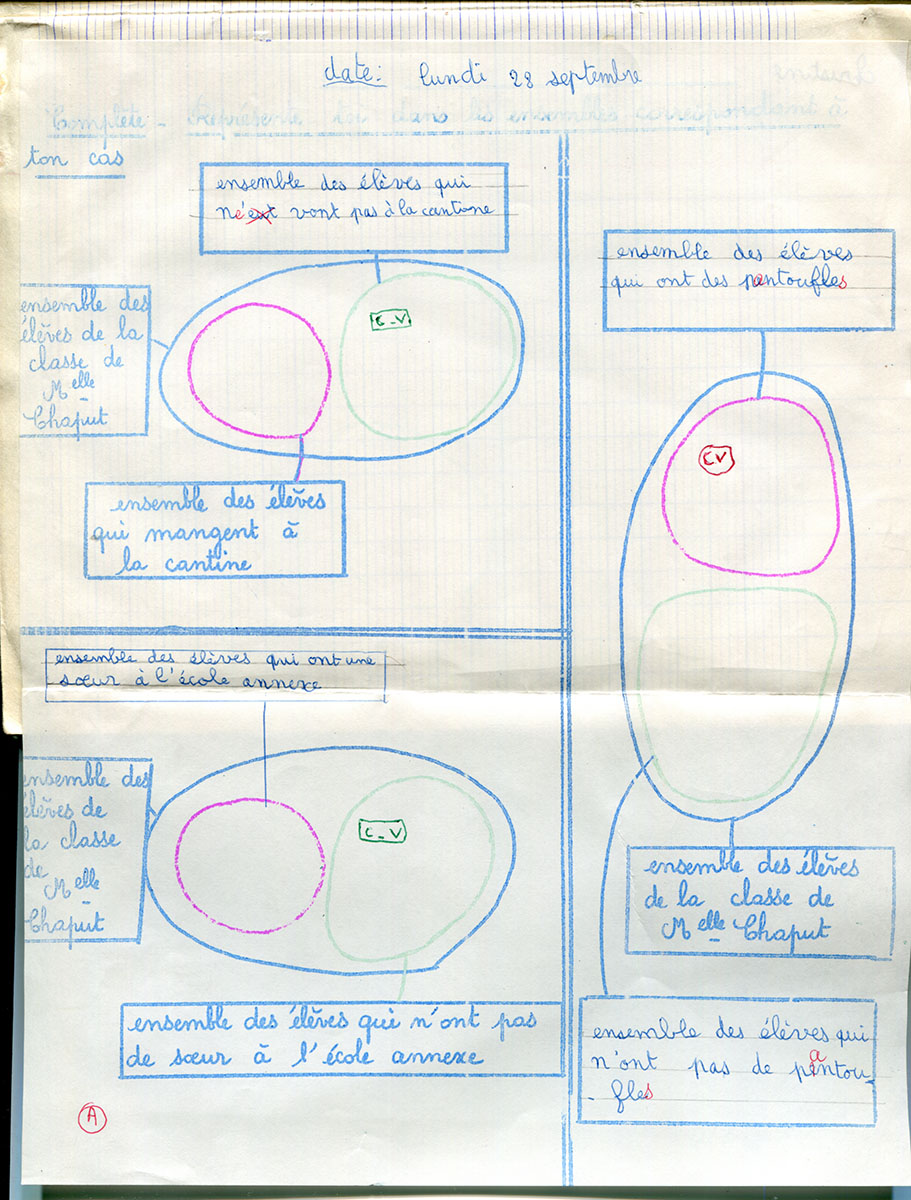 date: lundi 28 septembre
Complète - Représente toi dans les ensembles correspondant à
ton cas
ensemble des élèves qui
ne vont pas à la cantine
ensemble des
élèves de la
classe de
Melle
Chaput
C_V
ensemble des élèves
qui mangent à
la cantine
ensemble des élèves qui ont une
sœur à l'école annexe
ensemble des
élèves de
la classe
de
Melle
Chaput
C_V
ensemble des élèves qui n'ont pas
de sœur à l'école annexe
A
ensemble des élèves
qui ont des pantoufles
CV
ensemble des élèves
de la classe de
Melle Chaput
ensemble des élèves qui
n'ont pas de pantou-
- fles